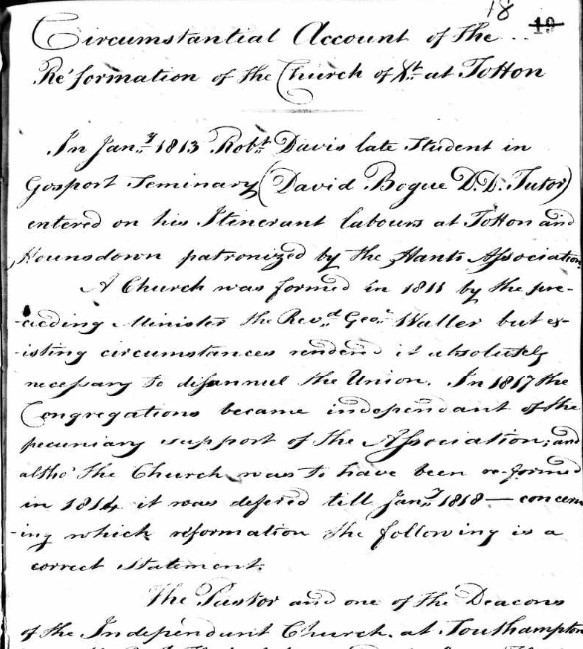 18 19
Circumstantial Account of the
Re'formation of the Church of Xt. at Totton
In Jany. 1813 Robt. Davis late Student in
Gosport Seminary (David Bogue D.D. Tutor)
entered on his Itinerant labours at Totton and
Hounsdown patronized by the Hants Association
A Church was formed in 1811 by the pre-
-ceeding Minister the Revd. Geo. Waller but ex-
-isting circumstances renderd it absolutely
necessary to disannul the Union. In 1817 the
Congregations became independant of the
pecuniary support of the Association; and
altho' the Church was to have been re-formed
in 1814 it was defered till Jany. 1818 — concern
-ing which reformation the following is a
correct statement.
The Pastor and one of the Deacons
of the Independent Church at Southampton